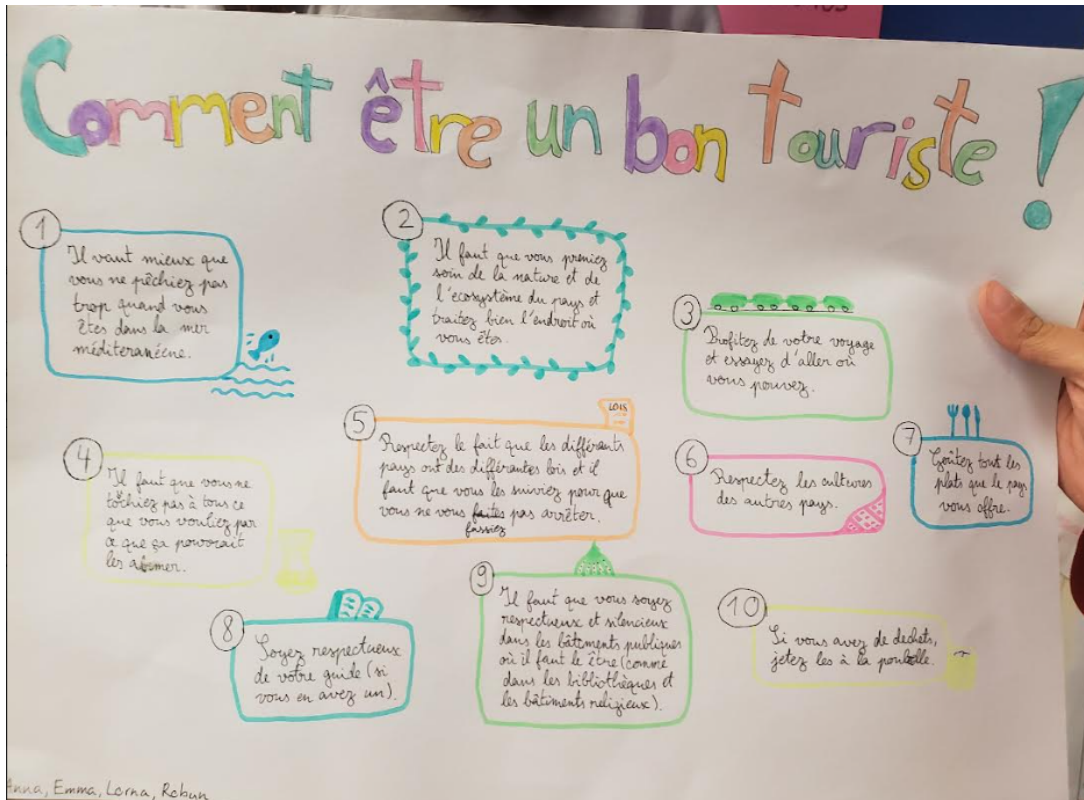 Comment être un bon touriste !
1
Il vaut mieux que
vous ne pêchiez pas
trop quand vous
êtes dans la mer
méditeranéene.
2
Il faut que vous preniez
soin de la nature et de
l'ecosystème du pays et
traitez bien l'endroit où
vous êtes.
3
Profitez de votre voyage
et essayez d'aller où
vous pouvez.
4
Il faut que vous ne
tochiez pas à tous ce
que vous vouliez par
ce que ça pouvorait
les abimer.
5
LOIS
Respectez le fait que les différents
pays ont des différentes lois et il
faut que vous les suiviez pour que
vous ne vous faites pas arrêter.
fassiez
6
Respectez les cultures
des autres pays.
7
Goûtez tout les
plats que le pays
vous offre.
8
Soyez respectueux
de votre guide (si
vous en avez un).
9
Il faut que vous soyez
respectueux et silencieux
dans les bâtiments publiques
où il faut le être (comme
dans les bibliothèques et
les bâtiments religieux).
10
Si vous avez de dechets,
jetez les à la poubelle.
Anna, Emma, Lorna, Robun